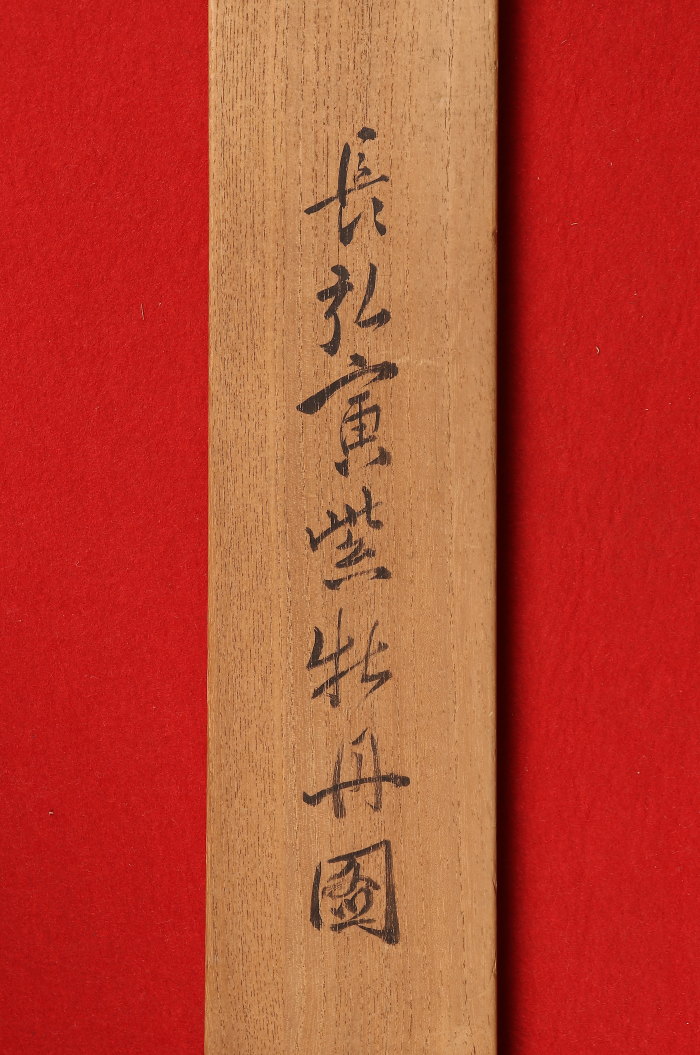 長弘寅紫牡丹圖